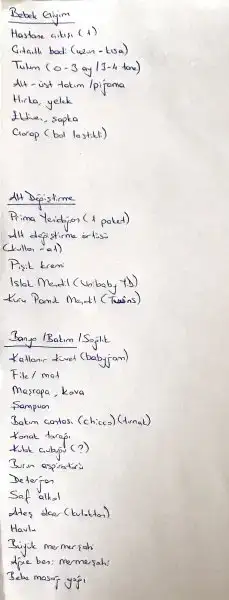 Bebek Giyim
Hastane çıkışı (1)
Çıtçıtlı badi (uzun - kısa)
Tulum (0-3 ay / 3-4 tane)
Alt - üst takım / pijama
Hırka, yelek
Eldiven, şapka
Çorap (bol lastikli)
Alt Değiştirme
Prima Yenidoğan (1 paket)
Alt değiştirme örtüsü
(kullan - at)
Pişik kremi
Islak Mendil (Unibaby)
Kuru Pamuk Mendil
Banyo / Bakım / Sağlık
Katlanır küvet (babyjem)
File / mat
Maşrapa, kova
Şampuan
Bakım çantası (chicco) (tırnak)
Konak tarağı
Kulak çubuğu (?)
Burun aspiratörü
Deterjan
Saf alkol
Ateş ölçer (kulaktan)
Havlu
Büyük mermerşahi
Ağız bezi mermerşahi
Bebe masaj yağı